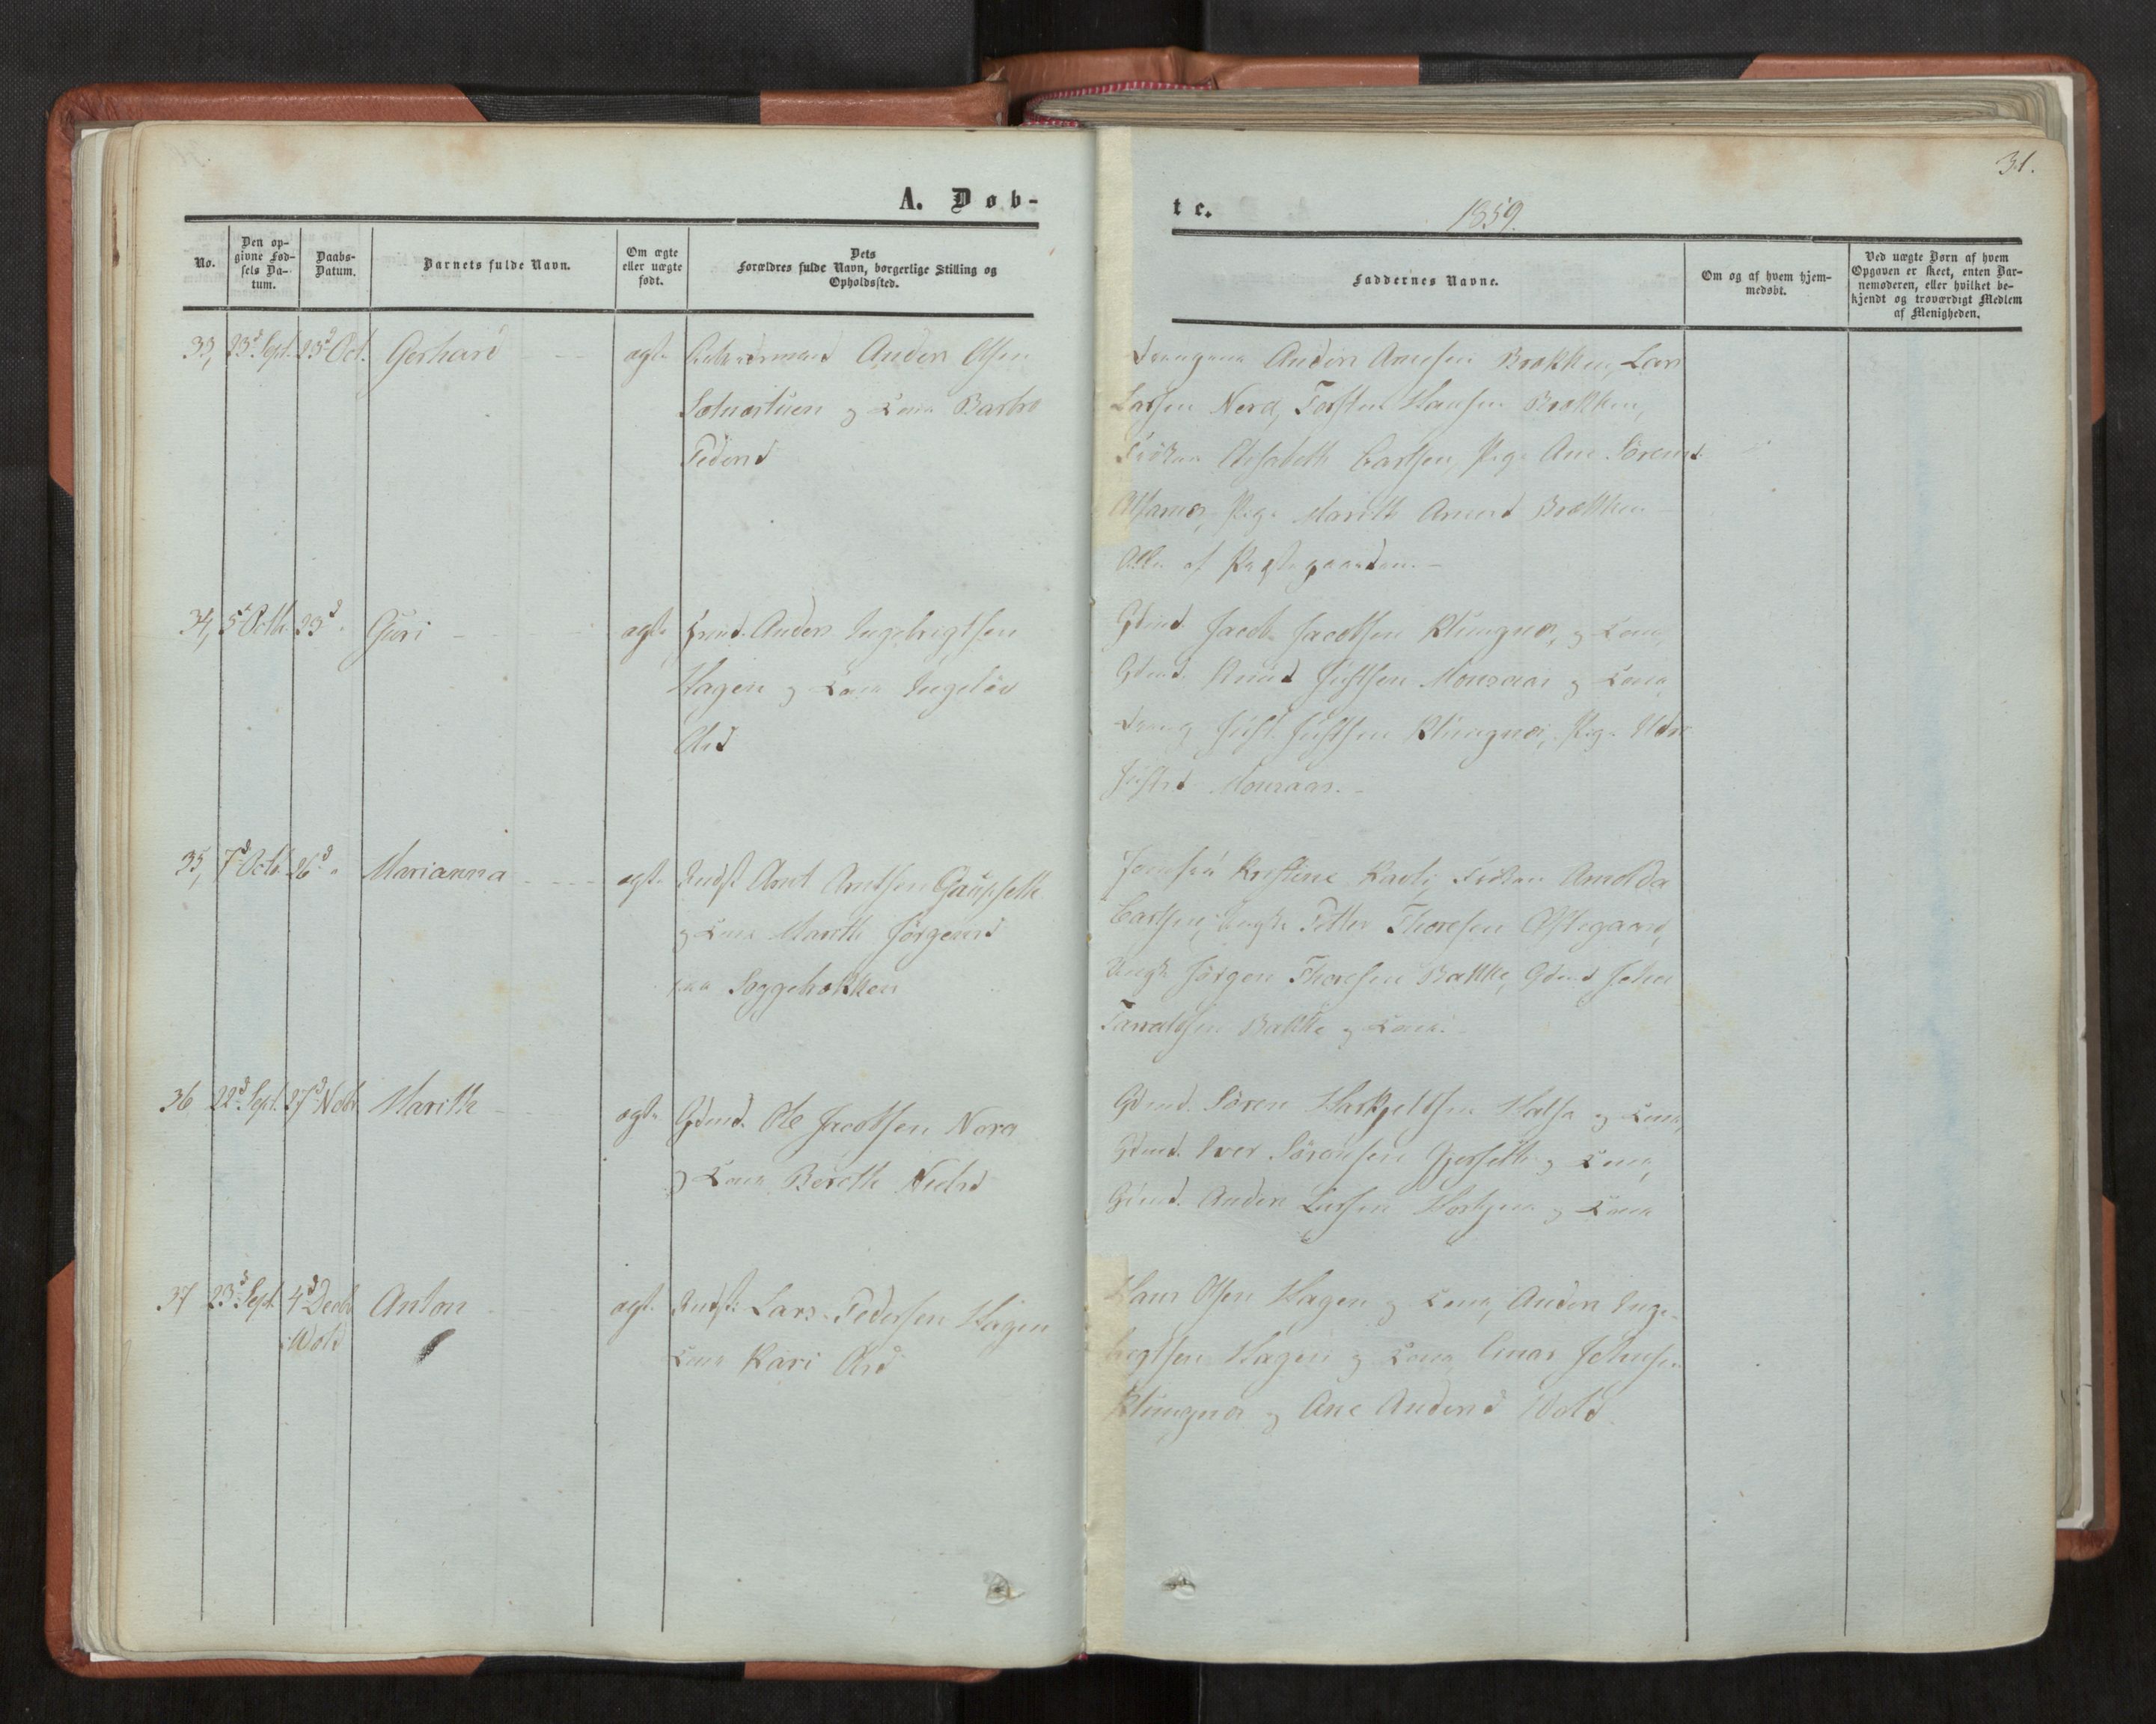 31.
A. Døb-
te.
1859.
No.
Den op-
givne Fød-
sels Da-
tum.
Daabs-
Datum.
Barnets fulde Navn.
Om ægte
eller uægte
født.
Dets
Forældres fulde Navn, borgerlige Stilling og
Opholdssted.
Faddernes Navne.
Om og af hvem hjem-
medøbt.
Ved uægte Børn af hvem
Opgaven er skeet, enten Bar-
nemoderen, eller hvilket be-
kjendt og troværdigt Medlem
af Menigheden.
33, 23d Sept. 23d Oct. Gerhard ægte Anders Olsen
og Kone Barbro
Pedersd
Anders Arnesen Brækken, Lars
Larsen Nerø, Torsten Hansen Brækken,
Frøken Elisabeth Carlsen, Pige Ane Sørensd
Pige Marith Arnesd Brækken
Alle af Præstegaarden.
34, 5te Octb. 23d Guri ægte Anders Ingebrigtsen
Hagen og Kone Ingeløv
Olsd
Gdmd. Jacob Jacobsen Klungnes, og Kone,
Gdmd. Amund Justsen Monsaas og Kone
Dreng Just Justsen Klungnes, Pige
Justsd Monsaas.
35, 7d Octb. 26d Marianna ægte Indst Arnt Arntsen Gaupseth
og Kone Marith Jørgensd
paa Soggebakken
Jomfru Kristine Kavli, Frøken Amolda
Carlsen, Ungk. Petter Thoresen Øftegaard,
Ungk. Jørgen Thoresen Bakke, Gdmd John
Bakke og Kone.
36 22d Sept. 27d Nobr. Marith ægte Gdmd. Ole Jacobsen Nora
og Kone Bereth Nielsd
Gdmd. Søren Halsa og Kone,
Gdmd. Iver Sørensen Gjerseth og Kone,
Gdmd. Anders Larsen og Kone
37 23d Sept. 4d Decbr. Anton ægte Indst: Lars Pedersen Hagen
Wold
Kone Kari Olsd
Hans Olsen Hagen og Kone, Anders Inge-
brigtsen Hagen og Kone, Einar Johnsen
Klungnes og Ane Andersd Wold